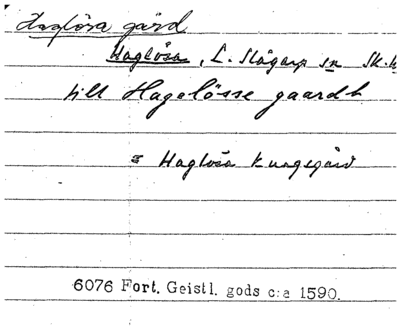 Haglösa gård
Haglösa, L. Slågarp sn Sk. h
till Hagelösse gaardh
= Haglösa kungsgård
6076 Fort. Geistl. gods c:a 1590.